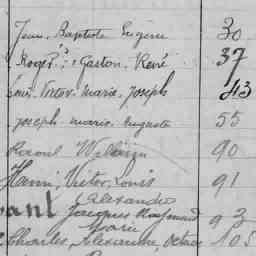 Jean Baptiste Eugène 30
Roger, Gaston René 37
Louis Victor Marie Joseph 43
Joseph Marie Auguste 55
Raoul William 90
Henri Victor Louis 91
Alexandre
Jacques Raymond 93
Marie
Charles, Alexandre, Octave 105